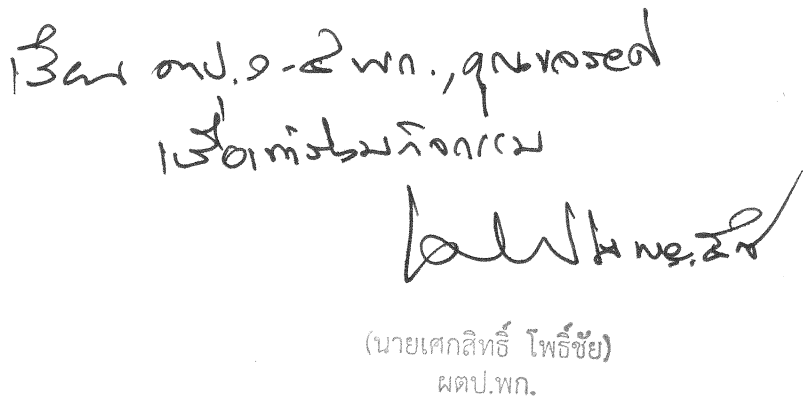 เรียน ตป.๑-๕ พก., คุณ
เพื่อเข้าร่วมกิจกรรม
(นายเศกสิทธิ์ โพธิ์ชัย)
ผตป.พก.